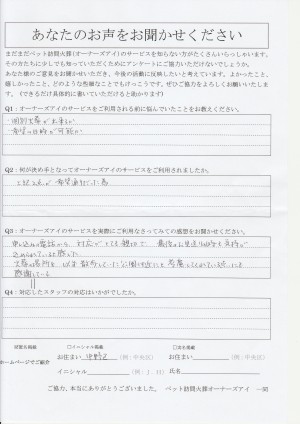 あなたのお声をお聞かせください
まだまだペット訪問火葬(オーナーズアイ)のサービスを知らない方がたくさんいらっしゃいます。
その方たちに少しでも知っていただくためにアンケートにご協力いただけないでしょうか。
あなた様のご意見をお聞かせいただき、今後の活動に反映したいと考えています。よかったこと、
嬉しかったこと、どのような些細なことでもけっこうです。ぜひご協力をよろしくお願いいたしま
す。(できるだけ具体的に書いていただけると助かります)
Q1：オーナーズアイのサービスをご利用される前に悩んでいたことをお教えください。
個別火葬が出来るか
希望の日時が可能か
Q2：何が決め手となってオーナーズアイのサービスをご利用されましたか。
上記2点が希望通りだった為
Q3：オーナーズアイのサービスを実際にご利用なさってみての感想をお聞かせください。
申し込みの電話から、対応がとても親切で、最後のお見送りの時も気持が
込められていた
感謝している
Q4：対応したスタッフの対応はいかがでしたか。
□イニシャル掲載
ホームページでご紹介
お住まい
(例：中央区)
お住まい
(例：中央区)
イニシャル
(例：J．H)
氏名
ご協力、本当にありがとうございました。 ペット訪問火葬オーナーズアイ 一同